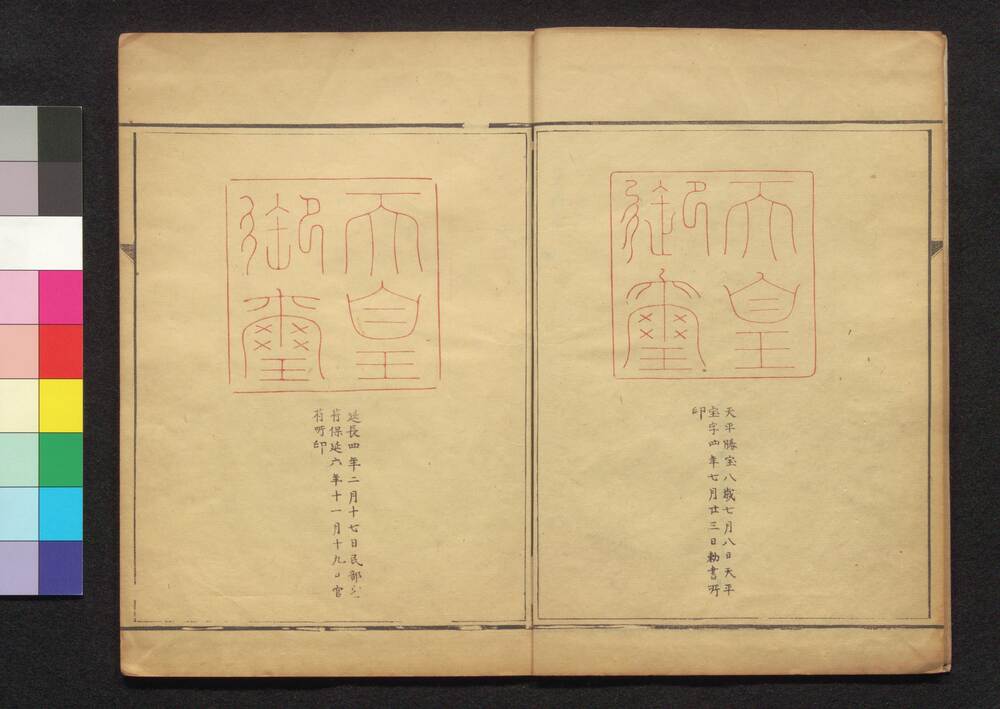 天皇
御璽
天平勝宝八歳七月八日天平
宝字四年七月廿三日勅書所
印
天皇
御璽
延長四年二月十七日民部省
苻保延六年十一月十九日官
苻所印